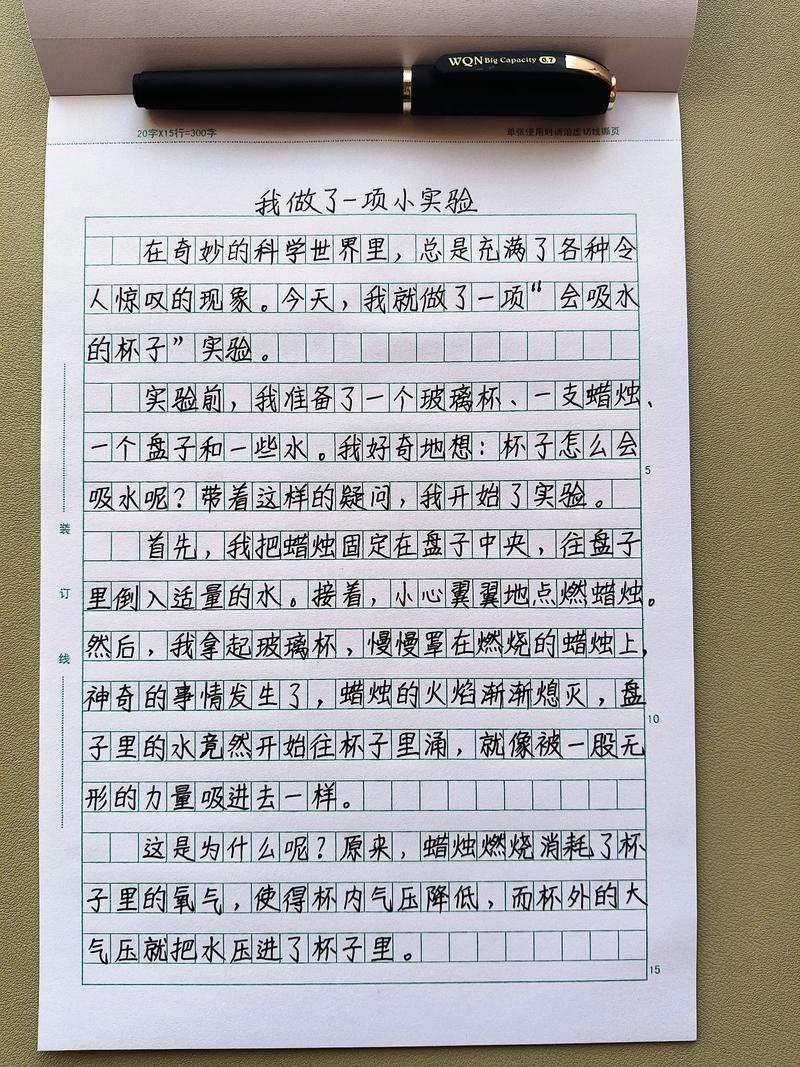 WQN Big Capacity 0.7
20字X15行=300字
单张使用时请沿虚切线撕页
我做了一项小实验
在奇妙的科学世界里，总是充满了各种令
人惊叹的现象。今天，我就做了一项“会吸水
的杯子”实验。
实验前，我准备了一个玻璃杯、一支蜡烛、
一个盘子和一些水。我好奇地想：杯子怎么会
5
吸水呢？带着这样的疑问，我开始了实验。
装
首先，我把蜡烛固定在盘子中央，往盘子
订
里倒入适量的水。接着，小心翼翼地点燃蜡烛。
线
然后，我拿起玻璃杯，慢慢罩在燃烧的蜡烛上，
神奇的事情发生了，蜡烛的火焰渐渐熄灭，盘
10
子里的水竟然开始往杯子里涌，就像被一股无
形的力量吸进去一样。
这是为什么呢？原来，蜡烛燃烧消耗了杯
子里的氧气，使得杯内气压降低，而杯外的大
气压就把水压进了杯子里。
15